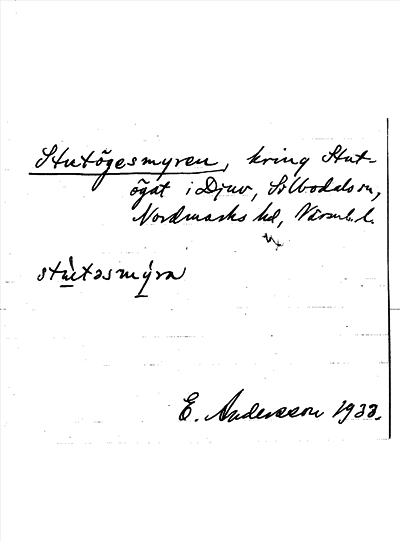 Stutögesmyren, kring Stut-
ögat i Djuv, Silbodals sn,
Nordmarks hd, Värml. l.
stùtəsmýra
E. Andersson 1933.